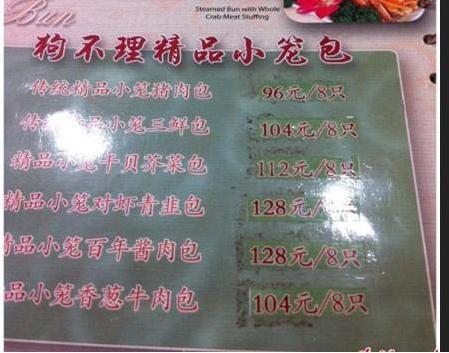 Bun
Steamed Bun with Whole
Crab Meat Stuffing
狗不理精品小笼包
传统精品小笼猪肉包 96元/8只
传统精品小笼三鲜包 104元/8只
精品小笼干贝芥菜包 112元/8只
精品小笼对虾青韭包 128元/8只
精品小笼百年酱肉包 128元/8只
品小笼香葱牛肉包 104元/8只